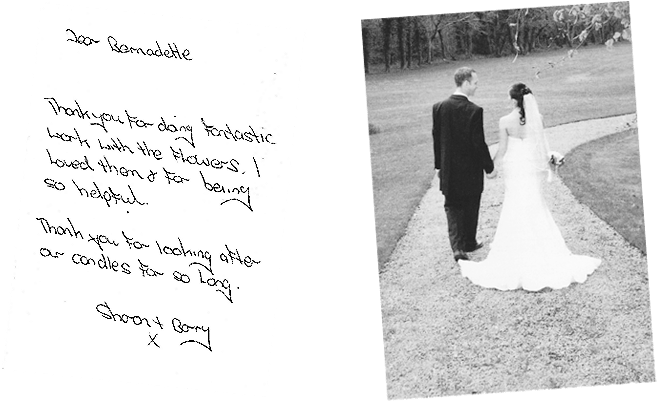 Dear Bernadette
Thank you for doing fantastic
work with the flowers. I
loved them & for being
so helpful.
Thank you for looking after
our candles for so long.
Sharon & Barry
X